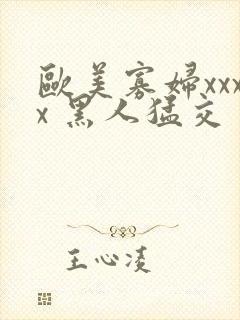 歐美寡婦xxx
x 黑人猛交
王心凌